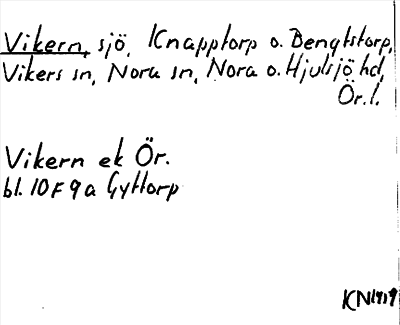 Vikern, sjö, Knapptorp o. Bengtstorp,
Vikers sn, Nora sn, Nora o. Hjulsjö hd,
Ör. l.
Vikern ek Ör.
bl. 10F 9a Gyttorp
KN 1919